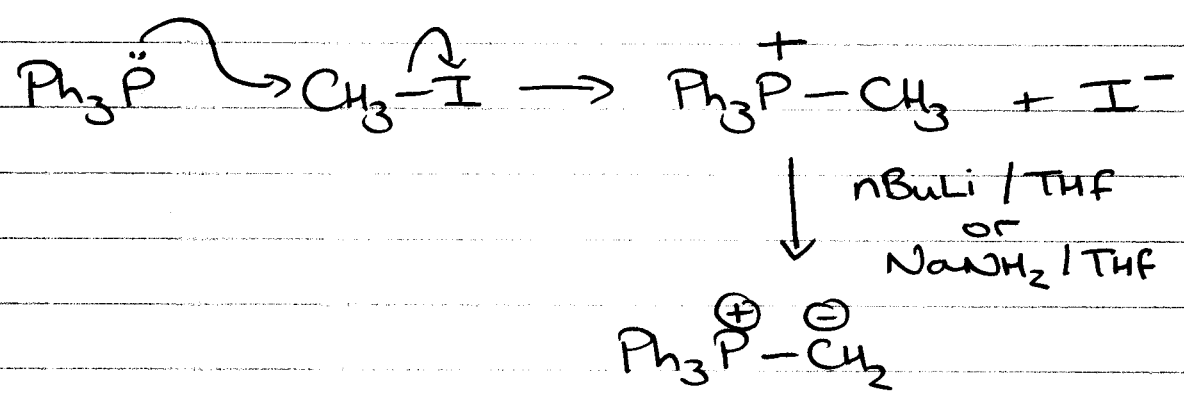 Ph₃P̈ CH₃–I ⟶ Ph₃P⁺–CH₃ + I⁻
nBuLi / THF
or
NaNH₂ / THF
Ph₃P⊕–C⊖H₂